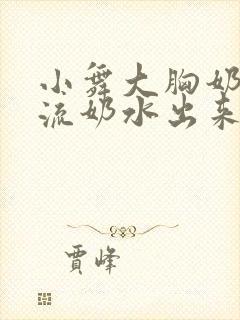 小舞大胸奶
流奶水出来
贾峰